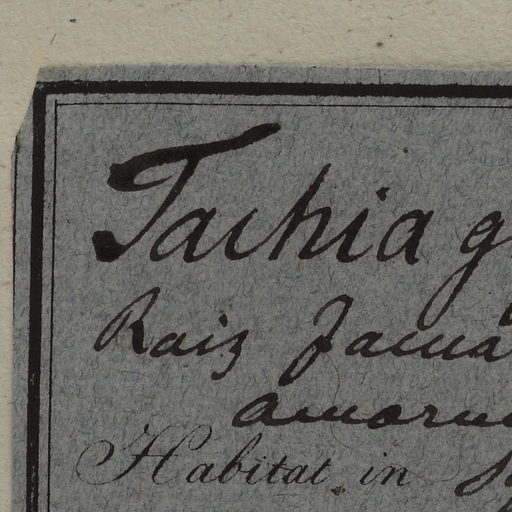 Tachia g
Raiz Jacua
amaru
Habitat in